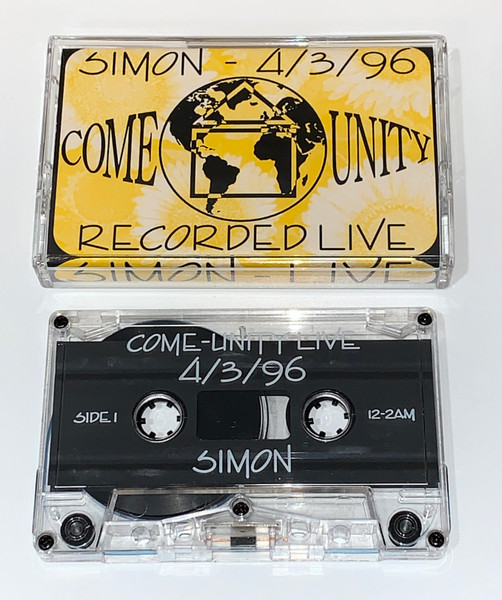 SIMON - 4/3/96
COME UNITY
RECORDED LIVE
SIMON - LIVE
COME-UNITY LIVE
4/3/96
SIDE 1
12-2AM
SIMON